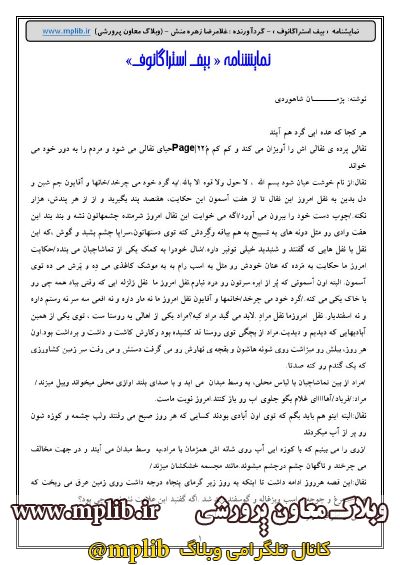 نمایشنامه « بیف استراگانوف » - گردآورنده : غلامرضا زهره منش - (وبلاگ معاون پرورشی) www.mplib.ir
نمایشنامه « بیف استراگانوف»
نوشته: پژمـــــــان شاهوردی
هر کجا که عده ایی گرد هم آیند
نقالی پرده ی نقالی اش را آویزان می کند و کم کم مPage|22حیای نقالی می شود و مردم را به دور خود می
خواند
نقال:از نام خوشت عیان شود بسم الله ، لا حول ولا قوه الا بالله /به گرد خود می چرخد/خانها و آقایون جم شین و
دل بدین به نقل امروز این نقال تا از هفت آسمون این حکایت، هفصد بند بگیرید و از از هر پندش، هزار
نکته /چوب دست خود را بیرون می آورد/اگه می خوایت این نقال امروز شرمنده چشمهاتون نشه و بند بند این
هفت وادی رو مثل دونه های یه تسبیح به هم ببافه وگردش کنه توی دستهاتون،سراپا چشم بشید و گوش ،که این
نقل با نقل هایی که گفتند و شنیدید خیلی توفیر داره/شال خودرا به کمک یکی از تماشاچیان می بندد/حکایت
امروز ما حکایت یه مَرده که عنان خودش رو مثل یه اسب رام به یه موشک کاغذی می ده و پَرش می ده توی
آسمون. البته اون آسمونی که پُر از ابره سرتون رو درد نیارم.نقل امروز ما نقل زلزله ایی که وقتی بیاد همه چی رو
با خاک یکی می کنه./گرد خود می چرخد/خانمها و آقایون نقل امروز ما نه مار داره و نه افعی سه سر نه رستم داره
و نه اسفندیار. نقل امروزما نقل مرادِ. لابد می گید مراد کیه؟مراد یکی از اهالی یه روستا ست ، توی یکی از همین
آبادیهایی که دیدیم و دیدیت مراد از بچگی توی روستا قد کشیده بود وکارش کاشت و داشت و برداشت بود.اون
هر روز، بیلش رو میزاشت روی شونه هاشون و بقچه ی نهارش رو می گرفت دستش و می رفت سر زمین کشاورزی
که یک گندم رو کنه صدتا.
/مراد از بین تماشاچیان با لباس محلی، به وسط میدان می اید و با صدای بلند اوازی محلی میخواند وبیل میزند /
مراد:/فریاد/آهااااای غلام بگو جلوی اب رو باز کنند.امروز نوبت ماست.
نقال:البته اینو هم باید بگم که توی اون آبادی بودند کسایی که هر روز صبح می رفتند ولب چشمه و کوزه شون
رو پر از آب میکردند
/زری را می بینیم که با کوزه ایی آب روی شانه اش همزمان با مراد،به وسط میدان می آیند و در جهت مخالف
می چرخند و ناگهان چشم درچشم میشوند.مانند مجسمه خشکشان میزند/
نقال:این قصه هرروز ادامه داشت تا اینکه یه روز زیر گرمای پنجاه درجه داشت روی زمین عرق می ریخت که
وبلاگ معاون پرورشی www.mplib.ir www.mplib.ir
کانال تلگرامی وبلاگ @mplib